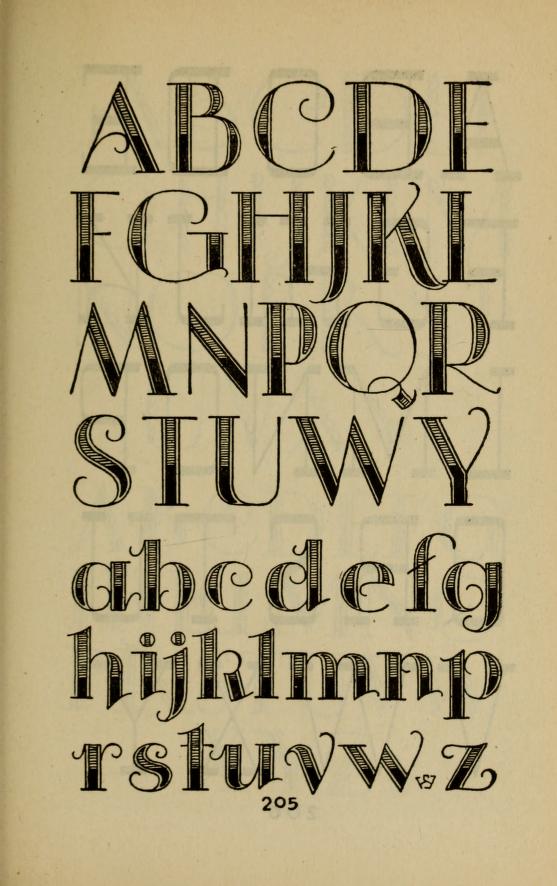 ABCDE
FGHIJKL
MNPQR
STUWY
abcdefg
hijklmnp
rstuvwz
205